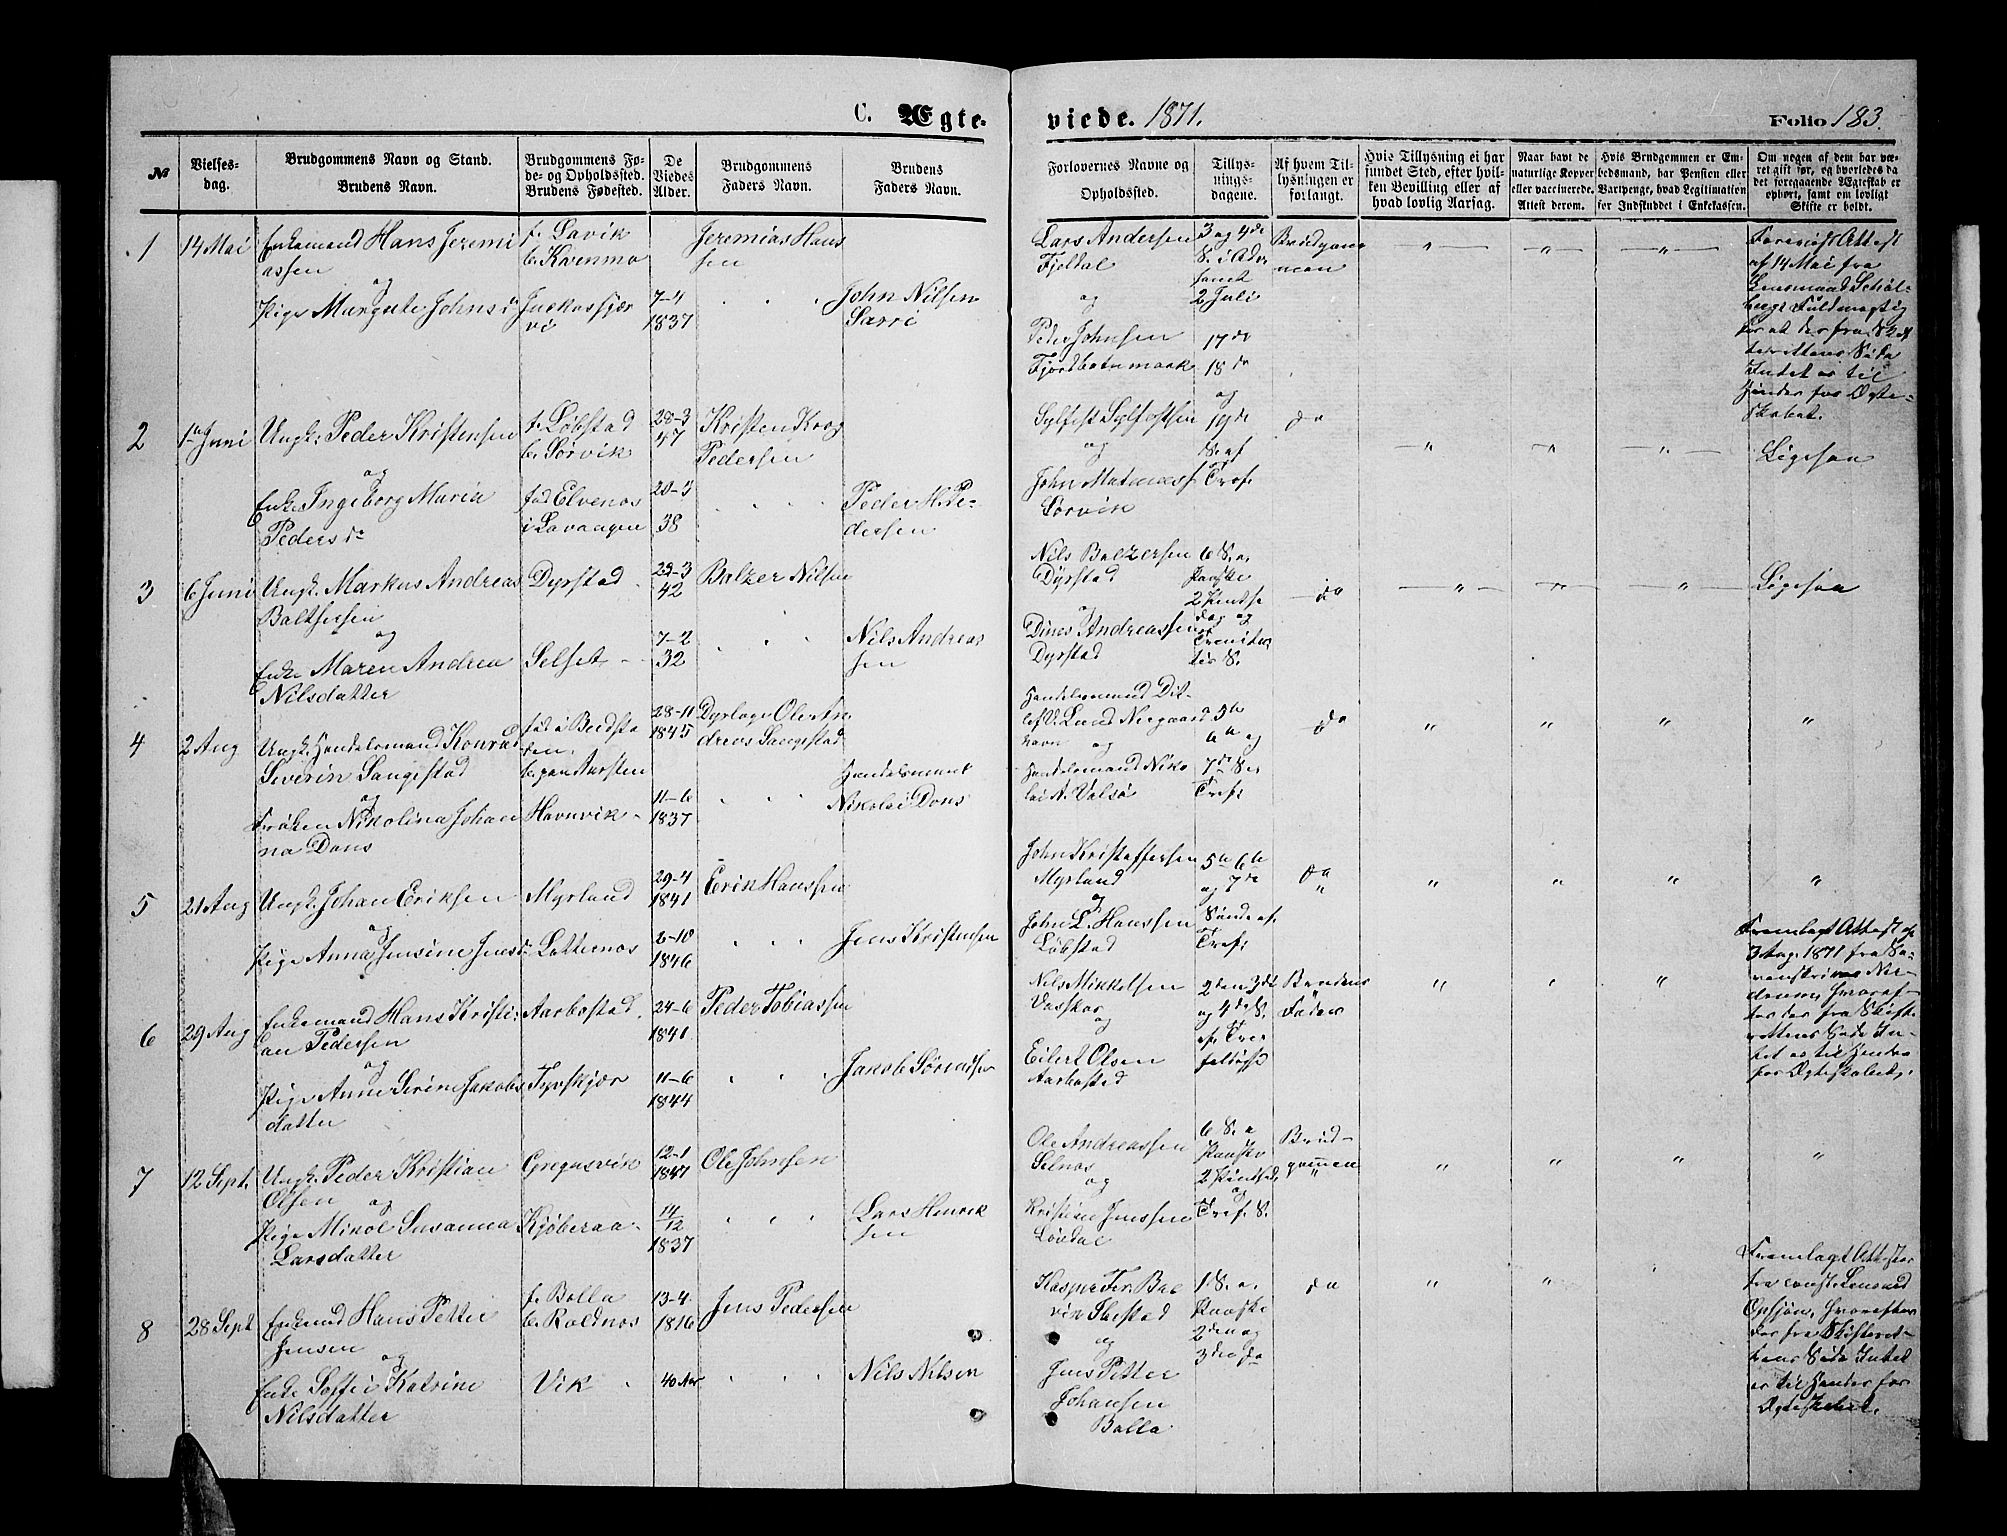 C. Ægteviede. 1871. Folio 183.
№
Vielsesdag.
Brudgommens Navn og Stand.
Brudens Navn.
Brudgommens Føde- og Opholdssted.
Brudens Fødested.
De Viedes Alder.
Brudgommens Faders Navn.
Brudens Faders Navn.
Forlovernes Navne og Opholdssted.
Tillysningsdagene.
Af hvem Tillysningen er forlangt.
Hvis Tillysning ei har fundet Sted, efter hvilken Bevilling eller af hvad lovlig Aarsag.
Naar havt de naturlige Kopper eller vaccinerede. Attest derom.
Hvis Brudgommen er Embedsmand, har Pension eller Vartpenge, hvad Legitimation for Indskuddet i Enkekassen.
Om nogen af dem har været gift før, og hvorledes da det foregaaende Ægteskab er ophørt, samt om lovligt Skifte er holdt.
1
14 Mai
Enkemand Hans Jeremiassen
og
Pige Margrete Johnsd
f. Lavik
b. Kvernmo
Jukkasjærvi
7-4
1837
Jeremias Hanssen
John Nilsen
Sarri
Lars Andersen
Fjeldal
og
Peder Johnsen
Fjordbotnmark
3 og 4de
S. i Advent
2 Juli
17de
18de
og
19de
S. af
Tref.
Brudgommen
Forevist Attest
af 14 Mai fra
Lensmand
Fuldmægtig
for at der fra Skifterettens Side
Intet er til
Hinder for Ægteskabet.
2
1ste Juni
Ungk. Peder Kristensen
og
Enke Ingeborg Maria
Pedersd
f. Løbstad
b. Sørvik
fød Elvenes
i Lavangen
28-3
47
20-3
38
Kristen Krog
Pedersen
Peder H. Pedersen
Sylfest Sylfestsen
og
John Matniass
Sørvik
do
Ligesaa
3
6 Juni
Ungk. Markus Andreas
Baltsersen
og
Enke Maren Andrea
Nilsdatter
Dyrstad
Selset
29-3
42
7-2
32
Balzer Nilsen
Nils Andreassen
Nils Balzersen
Dyrstad
og
Dines Andreassen
Dyrstad
6 S. e.
Paaske
2 Pintsedag og
Trinitatis S.
do
Ligesaa
4
2 Aug
Ungk. Handelsmand Konrad
Severin Sangestad
og
Frøken Nikolina Johanna Dons
fød i
b. paa Aarsten
Havnvik
28-11
1845
11-6
1837
Ole Andreas Sangestad
Handelsmand
Nikolai Dons
Handelsmand Ditlef V. Lund
og
Handelsmand Nikolai A. Valsø
5te
6te og
7de S. e.
Tref.
do
5
21 Aug
Ungk. Johan Eriksen
og
Pige Anna Jensine Jensd
Myrland
Lotternes
29-4
1841
2-10
1846
Erik Hanssen
Jens Kristensen
John Kristoffersen
Myrland
og
John L. Hanssen
Løbstad
5te 6te
og 7de
Sønd. ef.
Tref.
do
6
29 Aug
Enkemand Hans Kristian Pedersen
og
Pige Anne Serine Jakobsdatter
Aarbostad
Tipskjær
24-6
1841
11-6
1844
Peder Tobiassen
Jakob Sørensen
Nils Mikkelsen
Vasskar
og
Eilert Olsen
Aarbostad
2den 3de
og 4de S.
ef. Trefoldigh
Brudens
Fader
Fremlagt Attest af
3 Aug. 1871 fra Sorenskriver
hvorefter der fra Skifterettens Side Intet er til Hinder
for Ægteskabet.
7
12 Sept.
Ungk. Peder Kristian
Olsen og
Pige Mikol Susanna
Larsdatter
Gregusvik
Kjøberaa
12-1
1847
14/12
1837
Ole Johnsen
Lars Henriksen
Ole Andreassen
Selnes
og
Kristian Jenssen
Løvdal
6 S. e
Paaske
2 Pintsed.
og
Tref. S.
Brudgommen
8
28 Sept
Enkemd Hans Petter
Jensen
og
Enke Soffie Katrine
Nilsdatter
f. Bolla
b. Roldnes
Vik
13-4
1816
40 Aar
Jens Pedersen
Nils Nilsen
Kasper Fr. Balvin
og
Jens Petter
Johansen
Bolla
1 S. e.
Paaske
2den og
3den do
do
Fremlagt Attester
fra const. Lensmand
Opsjøn, hvorefter
der fra Skifterettens Side Intet
er til Hinder for
Ægteskabet.